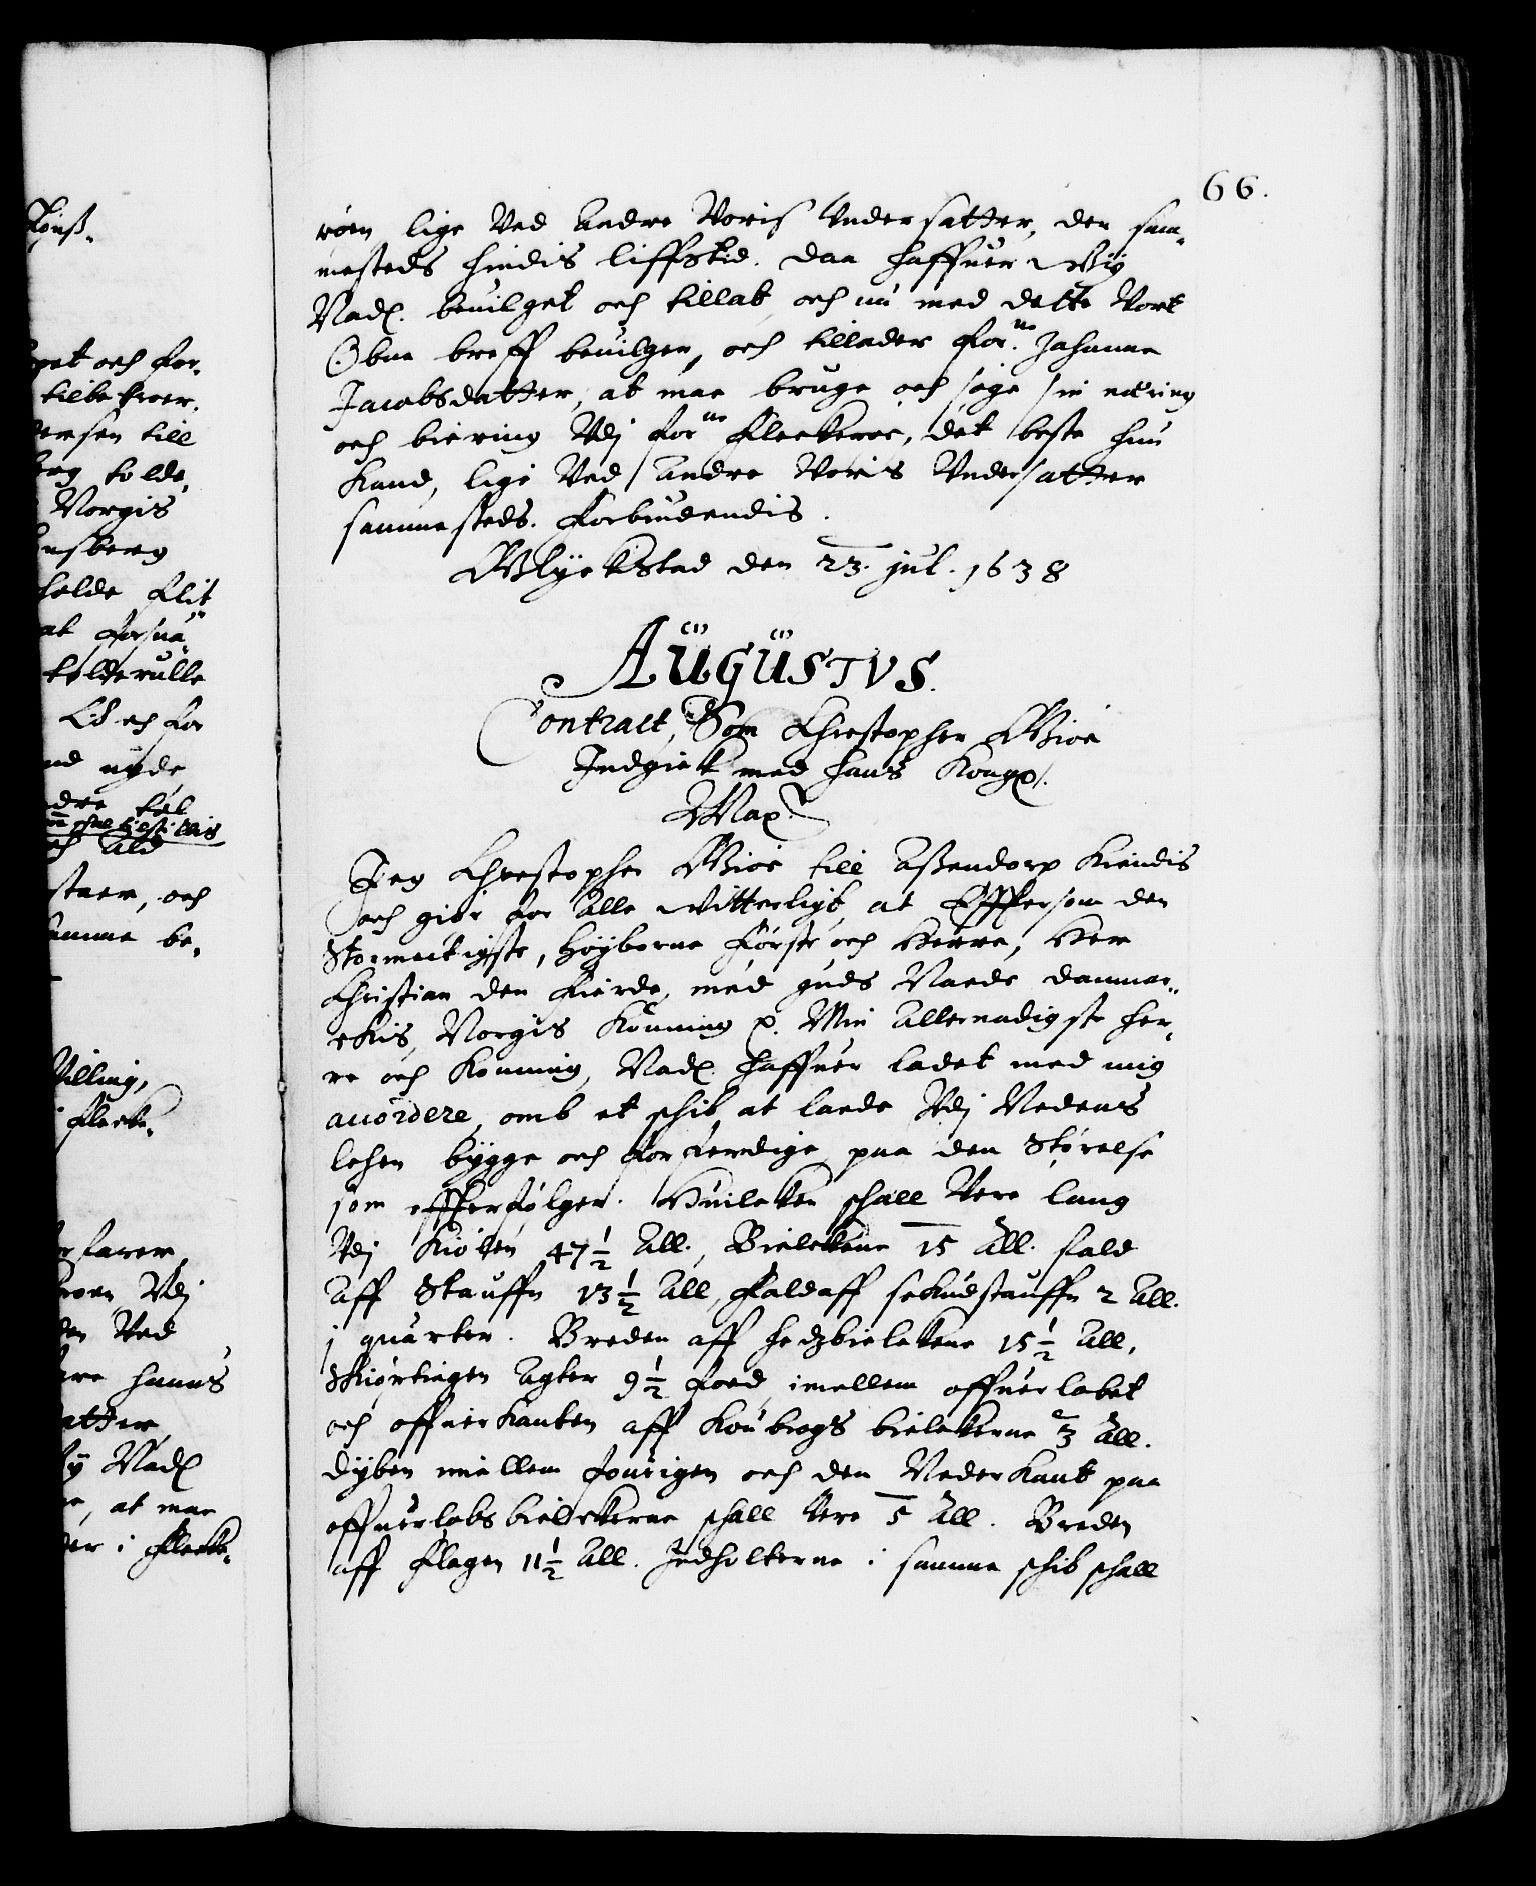 66.
röen lige Ved Andre Voris Vndersatter, der sam„
mesteds hindis liffstid. Daa haffuer Wij
Nad. beuilget och tillat, och nu med dette Vort
Obne breff beuilger, och tillader forne. Johanne
Jacobsdatter, at maa bruge och søge sin næring
och biering Vdj forne Fleckerøe, det beste hun
Kand, lige Ved Andre Voris Vndersatter
sammesteds. Forbiudendis.
Glyckstad den 23. jul. 1638
AÜGÜSTVS.
Contract, Som Christopher Giøe
Indgick med hans Kong.
May.
Jeg Christopher Giøe till Aßendorp Kiendis
och giør for Alle Witterligt, at Efftersom den
Stormectigste, Høyborne Første och Herre, Her
Christian den Fierde, med guds Naade danmar„
ckis, Norgis Konning p. Min Allernadigste Her„
re och Konning, Nad. haffuer ladet med mig
accordere, omb et schib, at laede Vdj Nedens
lehen bygge och forferdige, paa den Størelse
som effterfølger. Huilcken schall Vere lang
Vdj Kiölen 47½ All., Bielckene 15 All. fald
Aff Stauffn 13½ All, Faldaff bakudstauffn 2 All.
j quarter. Breden aff hedzbielckene 15½ All,
Skiørtingen Agter 9½ Foed, imellem offuerlobet
och offuerkanten aff Koubrogs bielckerne 2/3 All.
dyben imellem fourigen och den Nederkant paa
offuerlobs bielckerne schall Vere 5 All. Breden
aff Flagen 11½ All. Indholterne i samme schib schall